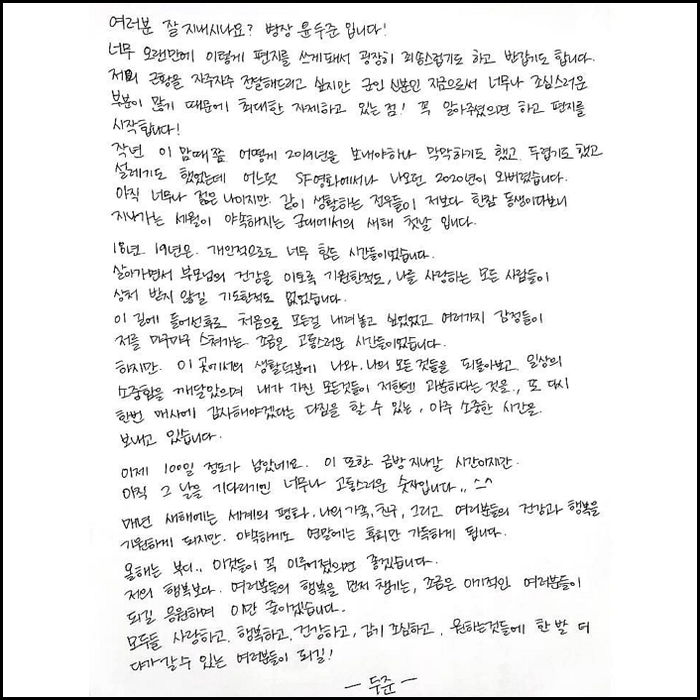 여러분 잘 지내시나요? 병장 윤두준 입니다!
너무 오랜만에 이렇게 편지를 쓰게돼서 굉장히 죄송스럽기도 하고 반갑기도 합니다.
저의 근황을 자주자주 전달해드리고 싶지만 군인 신분인 지금으로서 너무나 조심스러운
부분이 많기 때문에 최대한 자제하고 있는 점! 꼭 알아주셨으면 하고 편지를
시작합니다!
작년 이 맘때쯤 어떻게 2019년을 보내야하나 막막하기도 했고 두렵기도 했고
설레기도 했었는데 어느덧 SF영화에서나 나오던 2020년이 와버렸습니다.
아직 너무나 젊은 나이지만 같이 생활하는 전우들이 저보다 한참 동생이다보니
지나가는 세월이 야속해지는 군대에서의 새해 첫날 입니다.
18년. 19년은. 개인적으로도 너무 힘든 시간들이었습니다.
살아가면서 부모님의 건강을 이토록 기원한적도, 나를 사랑하는 모든 사람들이
상처 받지 않길 기도한적도 없었습니다.
이 길에 들어선후로 처음으로 모든걸 내려놓고 싶었었고 여러가지 감정들이
저를 마구마구 스쳐가는 조금은 고통스러운 시간들이었습니다.
하지만. 이 곳에서의 생활덕분에 나와. 나의 모든 것들을 되돌아보고 일상의
소중함을 깨달았으며 내가 가진 모든것들이 저한텐 과분하다는 것을., 또 다시
한번 매사에 감사해야겠다는 다짐을 할 수 있는, 아주 소중한 시간을
보내고 있습니다.
이제 100일 정도가 남았네요. 이 또한 금방 지나갈 시간이지만.
아직 그 날을 기다리기엔 너무나 고통스러운 숫자입니다.. ^-^
매년 새해에는 세계의 평화, 나의 가족, 친구, 그리고 여러분들의 건강과 행복을
기원하게 되지만. 야속하게도 연말에는 후회만 가득하게 됩니다.
올해는 부디.. 이것들이 꼭 이루어졌으면 좋겠습니다.
저의 행복보다. 여러분들의 행복을 먼저 챙기는, 조금은 이기적인 여러분들이
되길 응원하며 이만 줄이겠습니다.
모두들 사랑하고. 행복하고. 건강하고, 감기 조심하고. 원하는것들에 한 발 더
다가갈 수 있는 여러분들이 되길!
— 두준 —